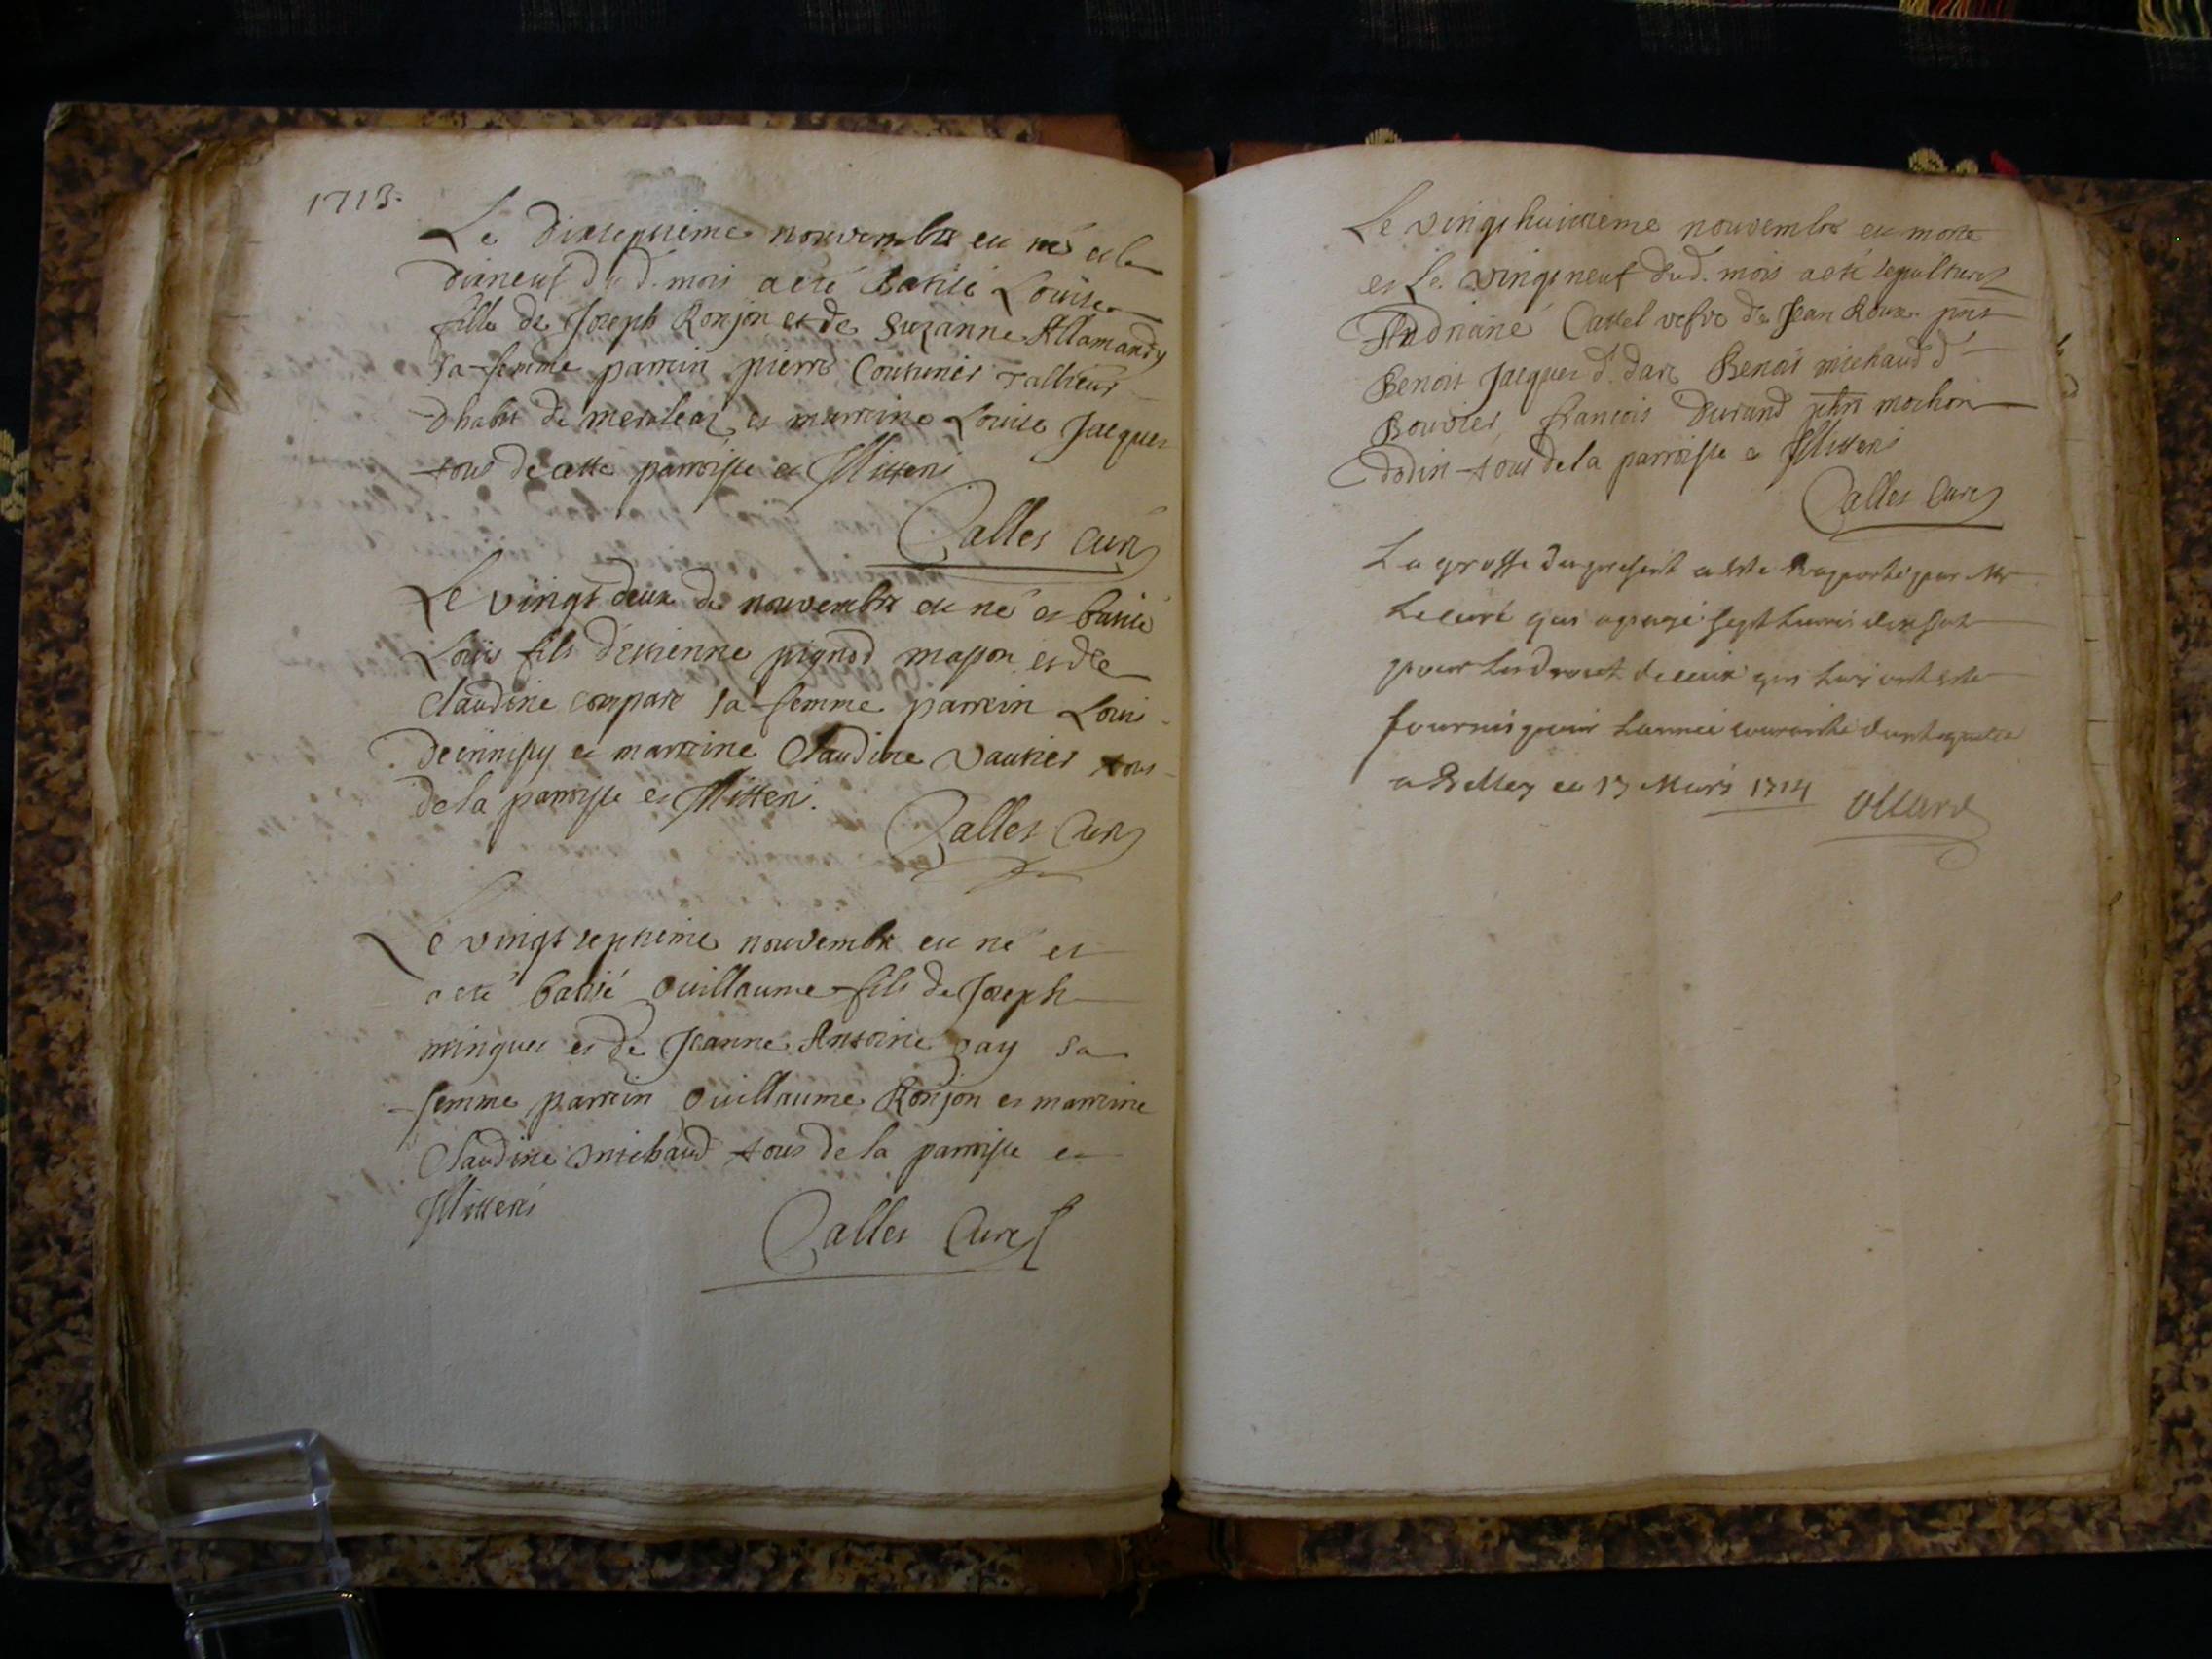 1713.
Le dixseptieme nouvembre eu né et le
dixneuf dud. mois a eté batisé Louise
fille de Joseph Ronjon et de Suzanne Allamandy
sa femme parrein pierre Couturier Tallieur
dhabit de et marreine Louise Jacques
tous de cette parroisse et Illitteri
Calles curé
Le vingt deux de nouvembre eu né et batisé
Louis fils d'estienne pignod masson et de
Claudine compare sa femme parrein Louis
et marreine Claudine Vautier tous
de la parroisse et Illitteri.
Calles Curé
Le vingt septieme nouvembre eu né et
a eté batisé Guillaume fils de Joseph
minguet et de Jeanne Antoine gay sa
femme parrein Guillaume Ronjon et marreine
Claudine michaud tous de la parroisse et
Illitteri
Calles Curé
Le vingt huictieme nouvembre eu morte
et Le vingt neuf dud. mois a eté sepulturé
Andriane Castel vefve de Jean Roux pnts
Benoit Jacques d. darc Benoit michaud d
Bouvier francois Durand mochon
dodin tous de la parroisse et Illitteri
Calles Curé
La grosse du present a este Raporté par Mr
Le curé qui a payé sept Livres dix sols
pour Les droit de ceux qui Luy ont este
fournis pour Lannée courante dont quitte
a Belley ce 17 Mars 1714